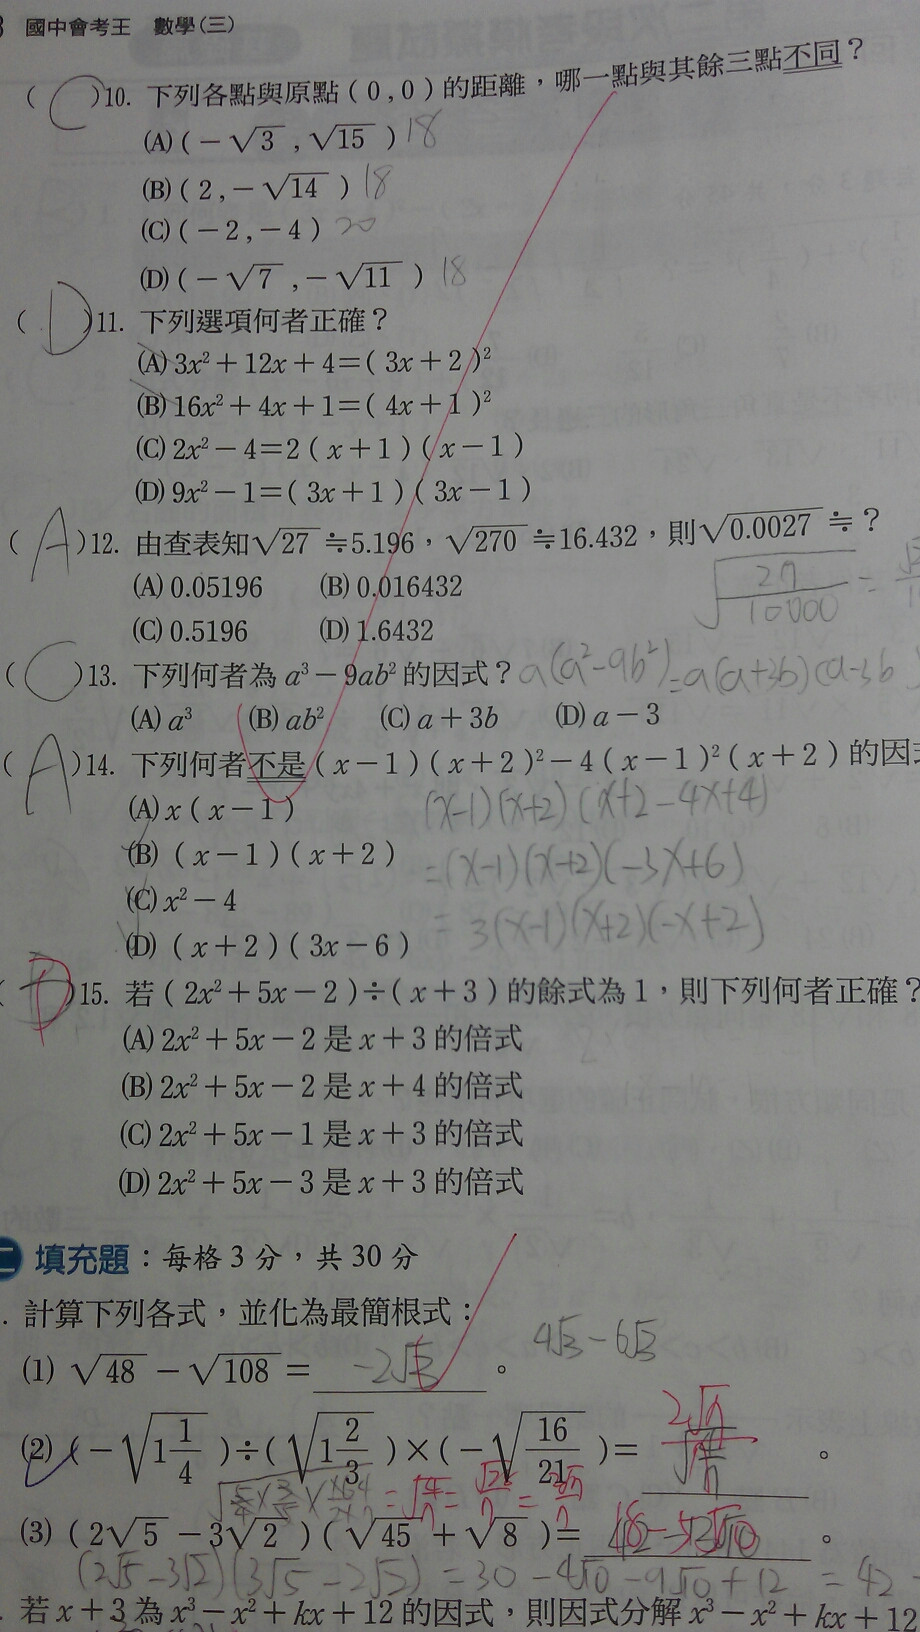 國中會考王 數學(三)
(C)10. 下列各點與原點(0,0)的距離，哪一點與其餘三點不同？
(A)(-√3,√15) 18
(B)(2,-√14) 18
(C)(-2,-4) 20
(D)(-√7,-√11) 18
(D)11. 下列選項何者正確？
(A) 3x²+12x+4=(3x+2)²
(B) 16x²+4x+1=(4x+1)²
(C) 2x²-4=2(x+1)(x-1)
(D) 9x²-1=(3x+1)(3x-1)
(A)12. 由查表知√27≒5.196，√270≒16.432，則√0.0027≒？
(A) 0.05196 (B) 0.016432
√(27/10000) =
(C) 0.5196 (D) 1.6432
(C)13. 下列何者為a³-9ab²的因式？ a(a²-9b²)=a(a+3b)(a-3b)
(A) a³ (B) ab² (C) a+3b (D) a-3
(A)14. 下列何者不是(x-1)(x+2)²-4(x-1)²(x+2)的因
(A) x(x-1) (x-1)(x+2)(x+2-4x+4)
(B) (x-1)(x+2) =(x-1)(x+2)(-3x+6)
(C) x²-4 = 3(x-1)(x+2)(-x+2)
(D) (x+2)(3x-6)
D)15. 若(2x²+5x-2)÷(x+3)的餘式為1，則下列何者正確？
(A) 2x²+5x-2是x+3的倍式
(B) 2x²+5x-2是x+4的倍式
(C) 2x²+5x-1是x+3的倍式
(D) 2x²+5x-3是x+3的倍式
二 填充題：每格3分，共30分
. 計算下列各式，並化為最簡根式：
(1) √48-√108= -2√3 。 4√3-6√3
(2) (-√(1 1/4))÷(√(1 2/3))×(-√(16/21))= 2√7/7 。
(3) (2√5-3√2)(√45+√8)= 18-5√10 。
(2√5-3√2)(3√5-2√2) = 30-4√10-9√10+12 = 42-
. 若x+3為x³-x²+kx+12的因式，則因式分解x³-x²+kx+12